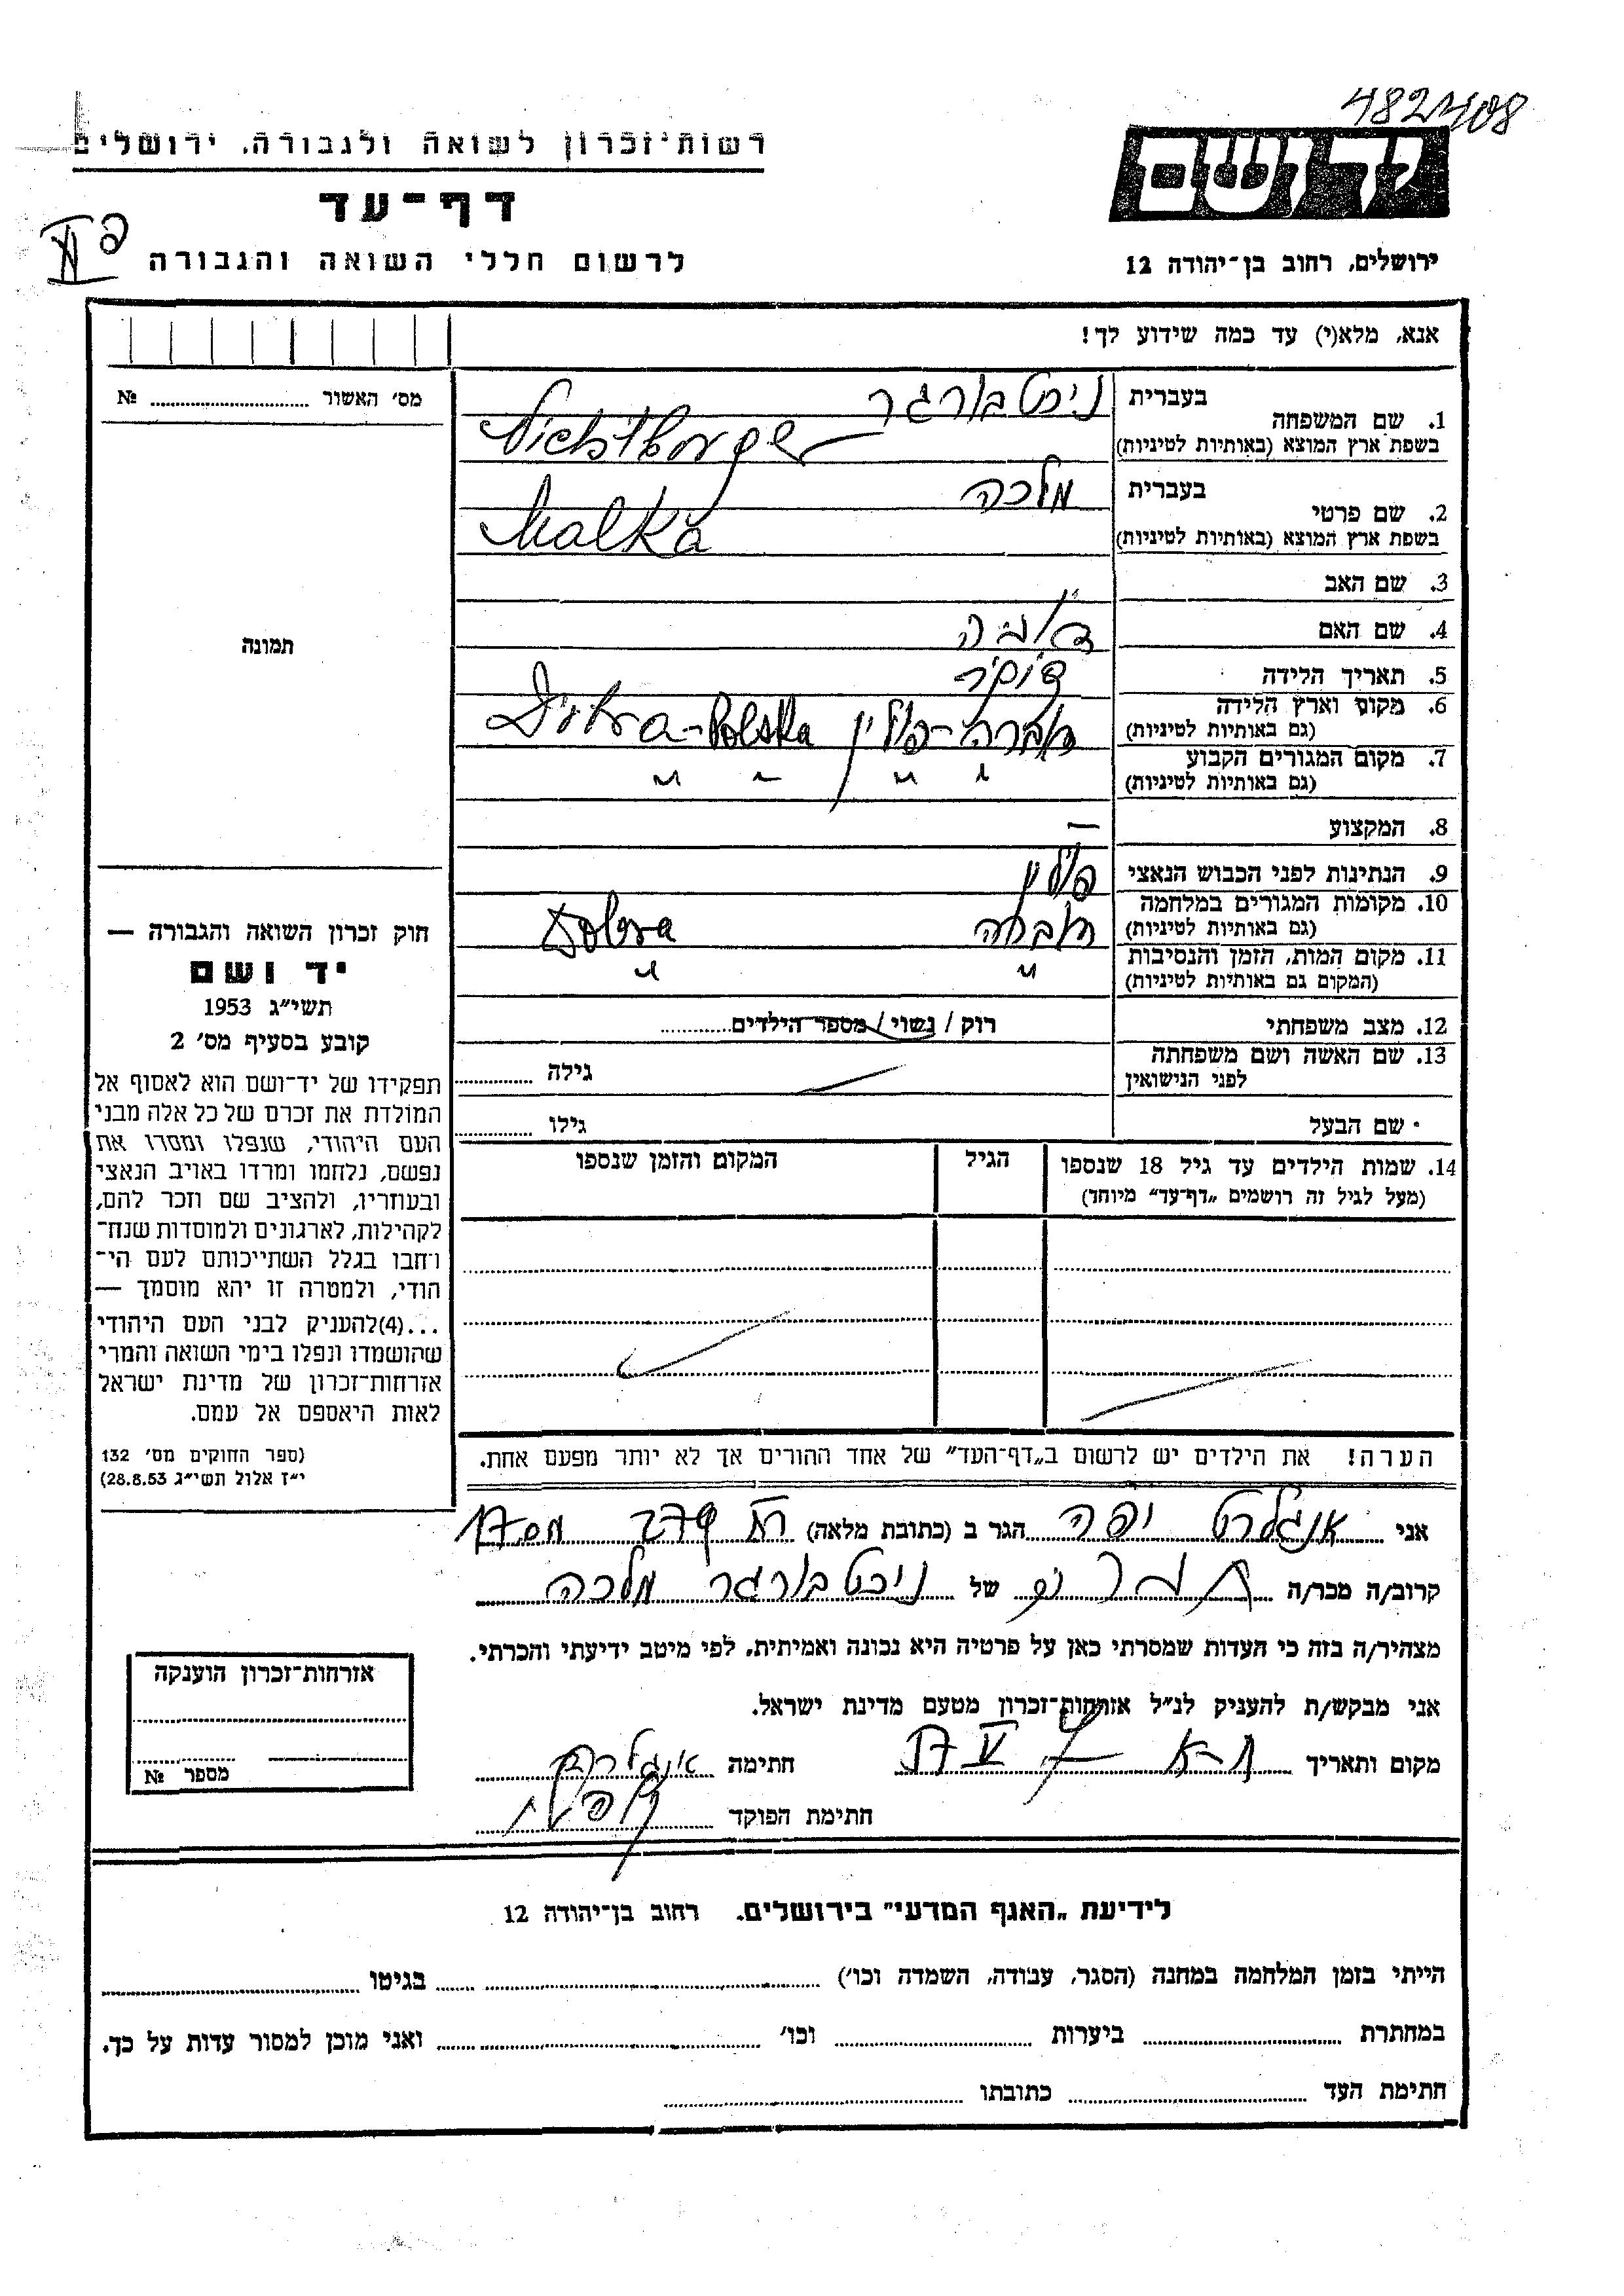 רשות־זכרון לשואה ולגבורה, ירושלים
דף־עד
לרשום חללי השואה והגבורה
יד ושם
ירושלים, רחוב בן־יהודה 12
אנא, מלא(י) עד כמה שידוע לך!
מס׳ האשור № 
1. שם המשפחה בעברית ניכטבורגר
בשפת ארץ המוצא (באותיות לטיניות) Nichtburger
2. שם פרטי בעברית מלכה
בשפת ארץ המוצא (באותיות לטיניות) Malka
3. שם האב
4. שם האם
5. תאריך הלידה
6. מקום וארץ הלידה
(גם באותיות לטיניות) דוברה-פולין Dobra-Polska
7. מקום המגורים הקבוע
(גם באותיות לטיניות) " " " "
8. המקצוע —
9. הנתינות לפני הכבוש הנאצי פולין
10. מקומות המגורים במלחמה
(גם באותיות לטיניות) דוברה Dobra
11. מקום המות, הזמן והנסיבות
(המקום גם באותיות לטיניות) " "
12. מצב משפחתי רוק / נשוי / מספר הילדים
13. שם האשה ושם משפחתה
לפני הנישואין גילה
• שם הבעל גילו
14. שמות הילדים עד גיל 18 שנספו
(מעל לגיל זה רושמים „דף־עד" מיוחד)
הגיל
המקום והזמן שנספו
תמונה
חוק זכרון השואה והגבורה —
יד ושם
תשי״ג 1953
קובע בסעיף מס׳ 2
תפקידו של יד־ושם הוא לאסוף אל
המולדת את זכרם של כל אלה מבני
העם היהודי, שנפלו ומסרו את
נפשם, נלחמו ומרדו באויב הנאצי
ובעוזריו, ולהציב שם וזכר להם,
לקהילות, לארגונים ולמוסדות שנח־
רחבו בגלל השתייכותם לעם הי־
הודי, ולמטרה זו יהא מוסמך —
...(4)להעניק לבני העם היהודי
שהושמדו ונפלו בימי השואה והמרי
אזרחות־זכרון של מדינת ישראל
לאות היאספם אל עמם.
(ספר החוקים מס׳ 132
י״ז אלול תשי״ג 28.8.53)
הערה! את הילדים יש לרשום ב„דף־העד" של אחד ההורים אך לא יותר מפעם אחת.
אני אנגלרט יפה הגר ב (כתובת מלאה)
קרוב/ה מכר/ה של ניכטבורגר מלכה
מצהיר/ה בזה כי העדות שמסרתי כאן על פרטיה היא נכונה ואמיתית, לפי מיטב ידיעתי והכרתי.
אני מבקש/ת להעניק לנ״ל אזרחות־זכרון מטעם מדינת ישראל.
מקום ותאריך ת-א חתימה אנגלרט
חתימת הפוקד
אזרחות־זכרון הוענקה
מספר №
לידיעת „האגף המדעי" בירושלים, רחוב בן־יהודה 12
הייתי בזמן המלחמה במחנה (הסגר, עבודה, השמדה וכו׳) בגיטו
במחתרת ביערות וכו׳ ואני מוכן למסור עדות על כך.
חתימת העד כתובתו